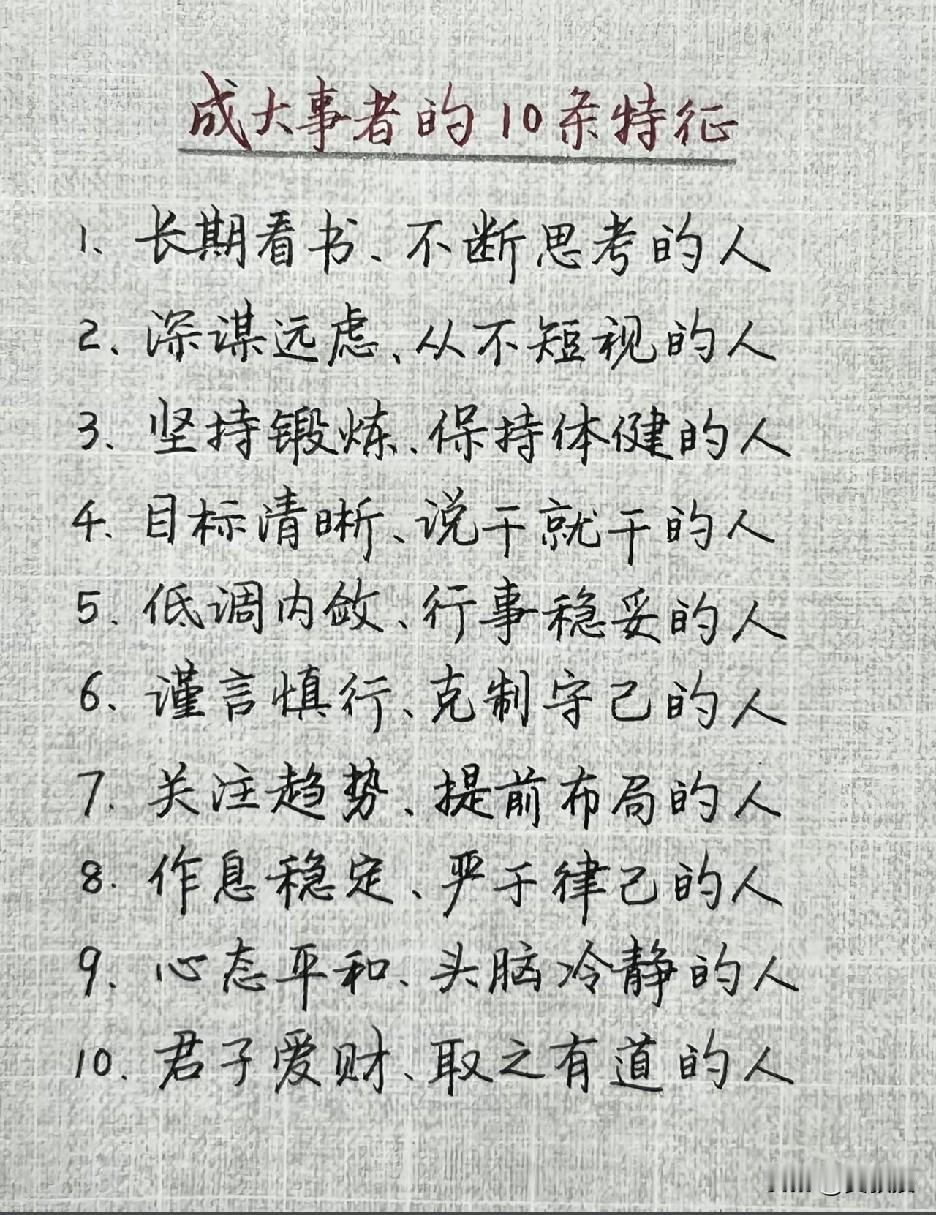 成大事者的10条特征
1、长期看书、不断思考的人
2、深谋远虑、从不短视的人
3、坚持锻炼、保持体健的人
4、目标清晰、说干就干的人
5、低调内敛、行事稳妥的人
6、谨言慎行、克制守己的人
7、关注趋势、提前布局的人
8、作息稳定、严于律己的人
9、心态平和、头脑冷静的人
10、君子爱财、取之有道的人